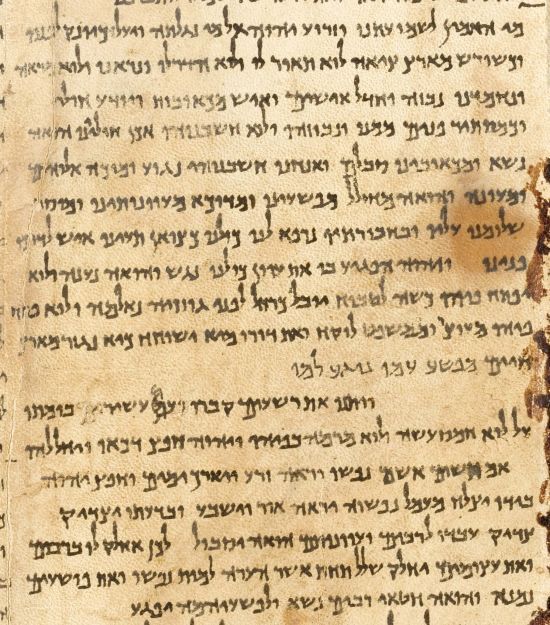 מי האמין לשמועתנו וזרוע יהוה אל מי נגלתה ויעל כיונק לפניו
וכשורש מארץ ציה לוא תואר לו ולוא הדר לו ונראנו ולוא מראה
ונחמדנו נבזה וחדל אישים ואיש מכאובות ויודע חולי
וכמסתיר פנים ממנו ונבוזהו ולוא חשבנוהו אכן חוליינו הואה
נשא ומכאובינו סבלם ואנחנו חשבנוהו נגוע ומוכה אלוהים
ומעונה והואה מחולל מפשעינו ומדוכא מעוונותינו ומוסר
שלומנו עליו ובחבורתיו נרפא לנו כולנו כצואן תעינו איש לדרכו
פנינו ויהוה הפגיע בו את עוון כולנו נגש והואה נענה ולוא
יפתח פיהו כשה לטבוח יובל כרחל לפני גוזזיה נאלמה ולוא פתח
פיהו מעוצר וממשפט לוקח ואת דורו מיא ישוחח כיא נגזר מארץ
חיים מפשע עמו נוגע למו
ויתנו את רשעים קברו ועם עשירים בומתו
על לוא חמס עשה ולוא מרמה בפיהו ויהוה חפץ דכאו ויחללהו
אם תשים אשם נפשו יראה זרע ויארך ימים וחפץ יהוה
בידו יצלח מעמל נפשוה יראה אור וישבע ובדעתו יצדיק
צדיק עבדו לרבים ועוונותם הואה יסבול לכן אחלק לו ברבים
ואת עצומים יחלק שלל תחת אשר הערה למות נפשו ואת פושעים
נמנה והואה חטאי רבים נשא ולפשעיהמה יפגע